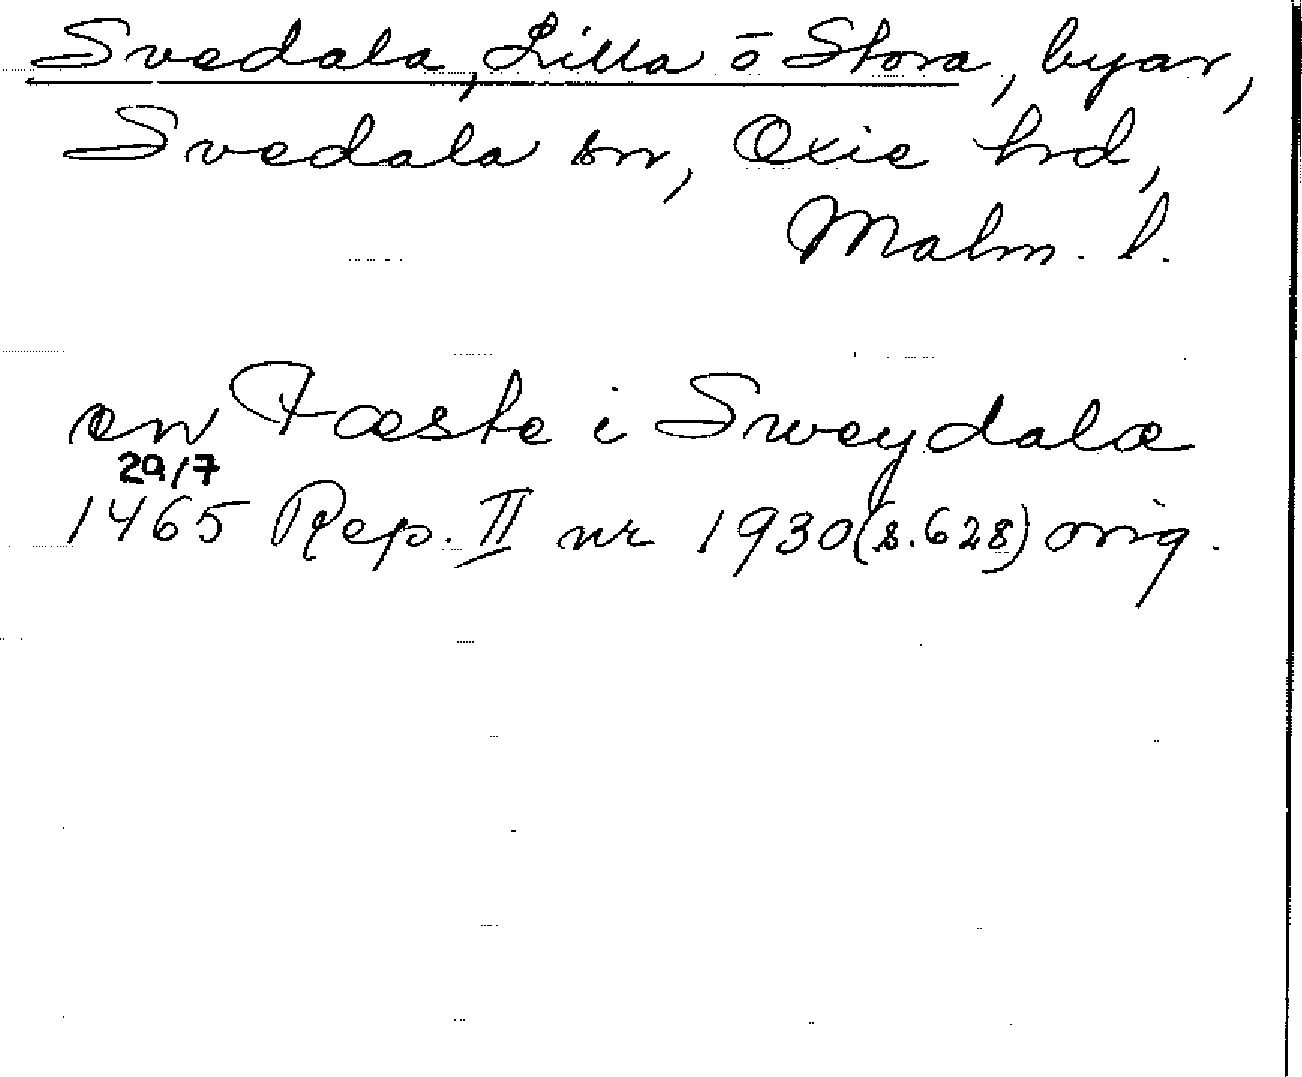 Svedala, Lilla o Stora, byar,
Svedala sn, Oxie hrd,
Malm. l.
en Fæste i Sweydalæ
29/7
1465 Rep. II nr 1930 (s. 628) orig.